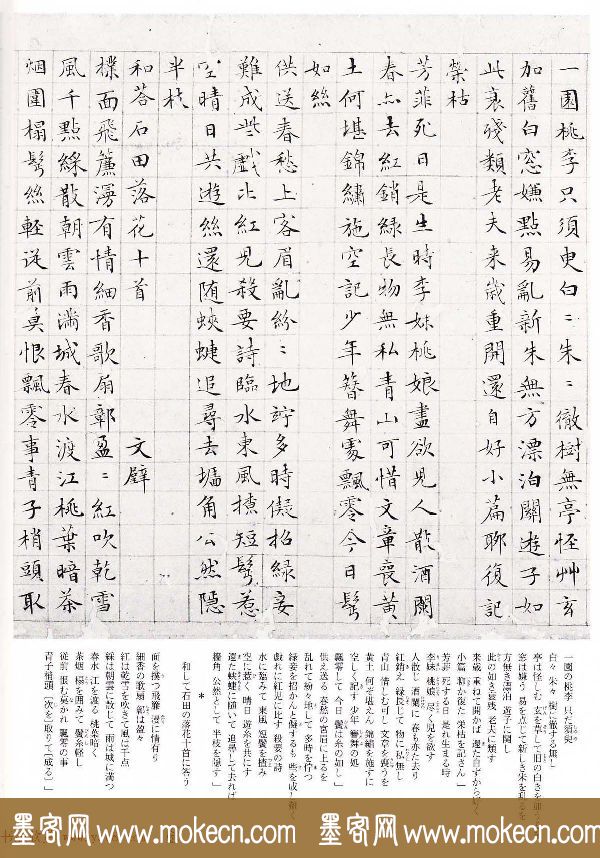 一園桃李只須臾白〻朱〻徹樹無亭怪艸玄
加舊白窓嫌點易亂新朱無方漂泊關遊子如
此衰殘類老夫来歳重開還自好小篇聊復記
榮枯
芳菲死日是生時李妹桃娘盡欲児人散酒闌
春亦去紅銷緑長物無私青山可惜文章喪黄
土何堪錦繡施空記少年簪舞處飄零今日鬂
如絲
供送春愁上客眉亂紛〻地竚多時儗招緑妾
難成些戲比紅児殺要詩臨水東風撩短鬂惹
空晴日共遊絲還随蛺蝶追尋去墻角公然隠
半枝
和荅石田落花十首 文壁
撲面飛簾漫有情細香歌扇鄣盈〻紅吹乾雪
風千點綵散朝雲雨満城春水渡江桃葉暗茶
烟圍榻鬂絲軽従前莫恨飄零事青子梢頭取
一園の桃李 只だ須臾
来歳 重ねて開かば 還た自ずから好く
小篇 聊か復た 栄枯を記さん
芳菲 死する日 是れ生まる時
李妹 桃娘 尽く児を欲す
人散じ 酒闌に 春も亦た去り
紅銷え 緑長じて 物に私無し
青山 惜しむ可し 文章を喪うを
黄土 何ぞ堪えん 錦繡を施すに
空しく記す 少年 簪舞の処
飄零して 今日 鬢は糸の如し
供え送る 春愁の客眉に上るを
乱れて紛々 地して多時を佇つ
緑妾を招かんと儗するも 些を成し難く
戯れに紅児に比す 殺要の詩
水に臨みて 東風 短鬢を撩み
空に惹く 晴日 遊糸を共にす
還た蛺蝶に随いて 追尋して去れば
牆角 公然として 半枝を隠す
*
和して石田の落花十首に答う
面を撲つ飛簾 漫に情有り
細香の歌扇 鄣は盈々
紅は乾雪を吹きて 風は千点
綵は朝雲に散じて 雨は城に満つ
春水 江を渡る 桃葉暗く
茶烟 榻を囲みて 鬢糸軽し
従前 恨む莫かれ 飄零の事
青子梢頭 [次を]取りて[成る]
墨客网 www.mokecn.com 墨客网 www.mokecn.com